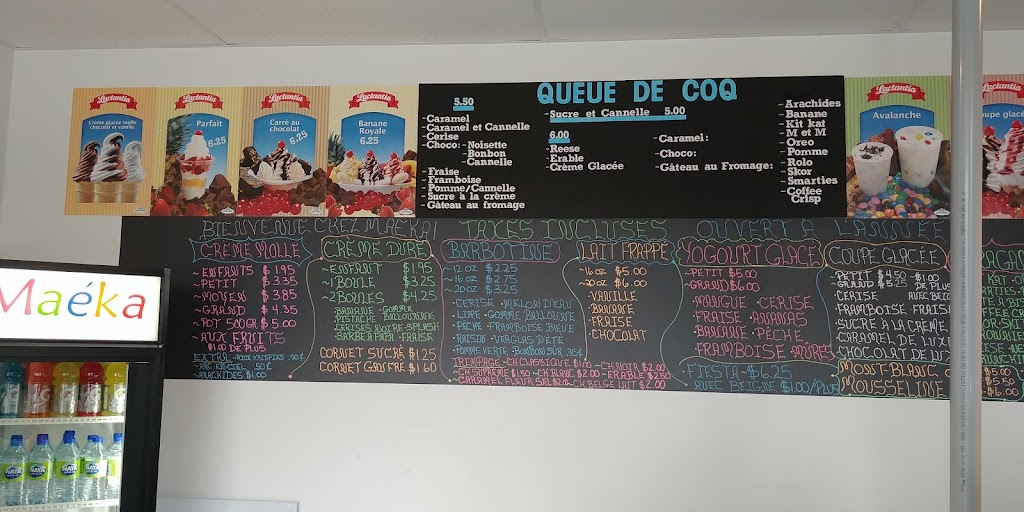 Lactantia
Crème glacée molle
chocolat et vanille
Lactantia
Parfait
6.25
Lactantia
Carré au
chocolat
6.25
Lactantia
Banane
Royale
6.25
QUEUE DE COQ
5.50
-Caramel
-Caramel et Cannelle
-Cerise
-Choco:-Noisette
-Bonbon
-Cannelle
-Fraise
-Framboise
-Pomme/Cannelle
-Sucre à la crème
-Gâteau au fromage
-Sucre et Cannelle 5.00
6.00
-Reese
-Erable
-Crème Glacée
-Caramel:
-Choco:
-Gâteau au Fromage:
-Arachides
-Banane
-Kit kat
-M et M
-Oreo
-Pomme
-Rolo
-Skor
-Smarties
-Coffee
Crisp
Avalanche
Lactantia
oupe glacé
BIENVENUE CHEZ MAEKA! TAXES INCLUSES OUVERT À L'ANNÉE
CRÈME MOLLE
~ENFANTS $1.95
~PETIT $3.35
~MOYEN $3.85
~GRAND $4.35
~POT 500GR $5.00
~AUX FRUITS
$1.00 DE PLUS
EXTRA
~ARC-EN-CIEL .50¢
~ARACHIDES $1.00
CRÈME DURE
~ENFANT $1.95
~1 BOULE $3.25
~2 BOULES $4.25
BANANE · GOMME
PISTACHE BALLOUNE
CERISES NOIRE · SPLASH
BARBE À PAPA · FRAISE
CORNET SUCRÉ $1.25
CORNET GAUFRÉ $1.60
BARBOTINE
~12 OZ $2.25
~16 OZ $2.75
~20 OZ $3.25
·CERISE ·MELON D'EAU
·LIME ·GOMME BALLOUNE
·PÊCHE ·FRAMBOISE BLEUE
·RAISIN ·VERGLAS D'ÉTÉ
·POMME VERTE ·BONBON SUR .35¢
TREMPAGE ~CH CLASSIQUE $1.00 ~CH NOIR $2.00
~CH SUPRÊME $1.50 ~CH BLANC $2.00 ~ERABLE $2.50
~CARAMEL FLEUR SEL $2.00 ~CH BELGE LAIT $2.00
LAIT FRAPPÉ
~16 OZ $5.00
~20 OZ $6.00
VANILLE
BANANE
FRAISE
CHOCOLAT
YOGOURT GLACÉ
~PETIT $5.00
~GRAND $6.00
MANGUE · CERISE
FRAISE · ANANAS
BANANE · PÊCHE
FRAMBOISE · MÛRES
~FIESTA ~$6.25
AVEC BEIGNE $1.00/PLUS
COUPE GLACÉE
~PETIT $4.50
~GRAND $5.25
~$1.00
DE PLUS
CERISE
FRAMBOISE · FRAISE
SUCRE À LA CRÈME
CARAMEL DE LUXE
CHOCOLAT DE LUX
MONT-BLANC
MOUSSELINE
$5.00
$5.50
$6.00
Maéka